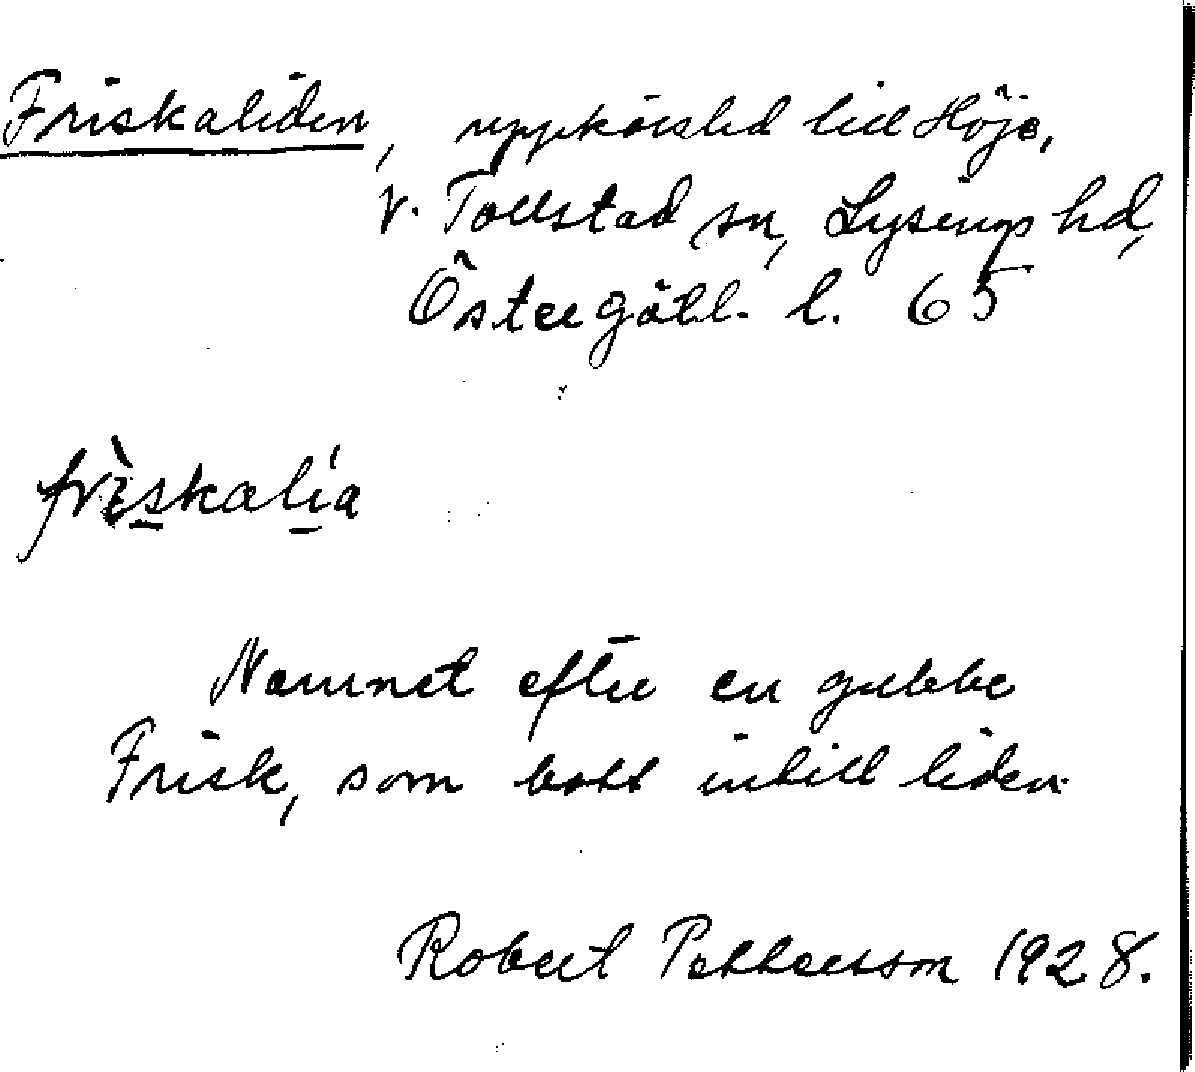 Friskaliden, uppkörslid till Höje,
V. Tollstad sn, Lysings hd,
Östergötl. l. 65
frìskalía
Namnet efter en gubbe
Frisk, som bott intill liden.
Robert Pettersson 1928.